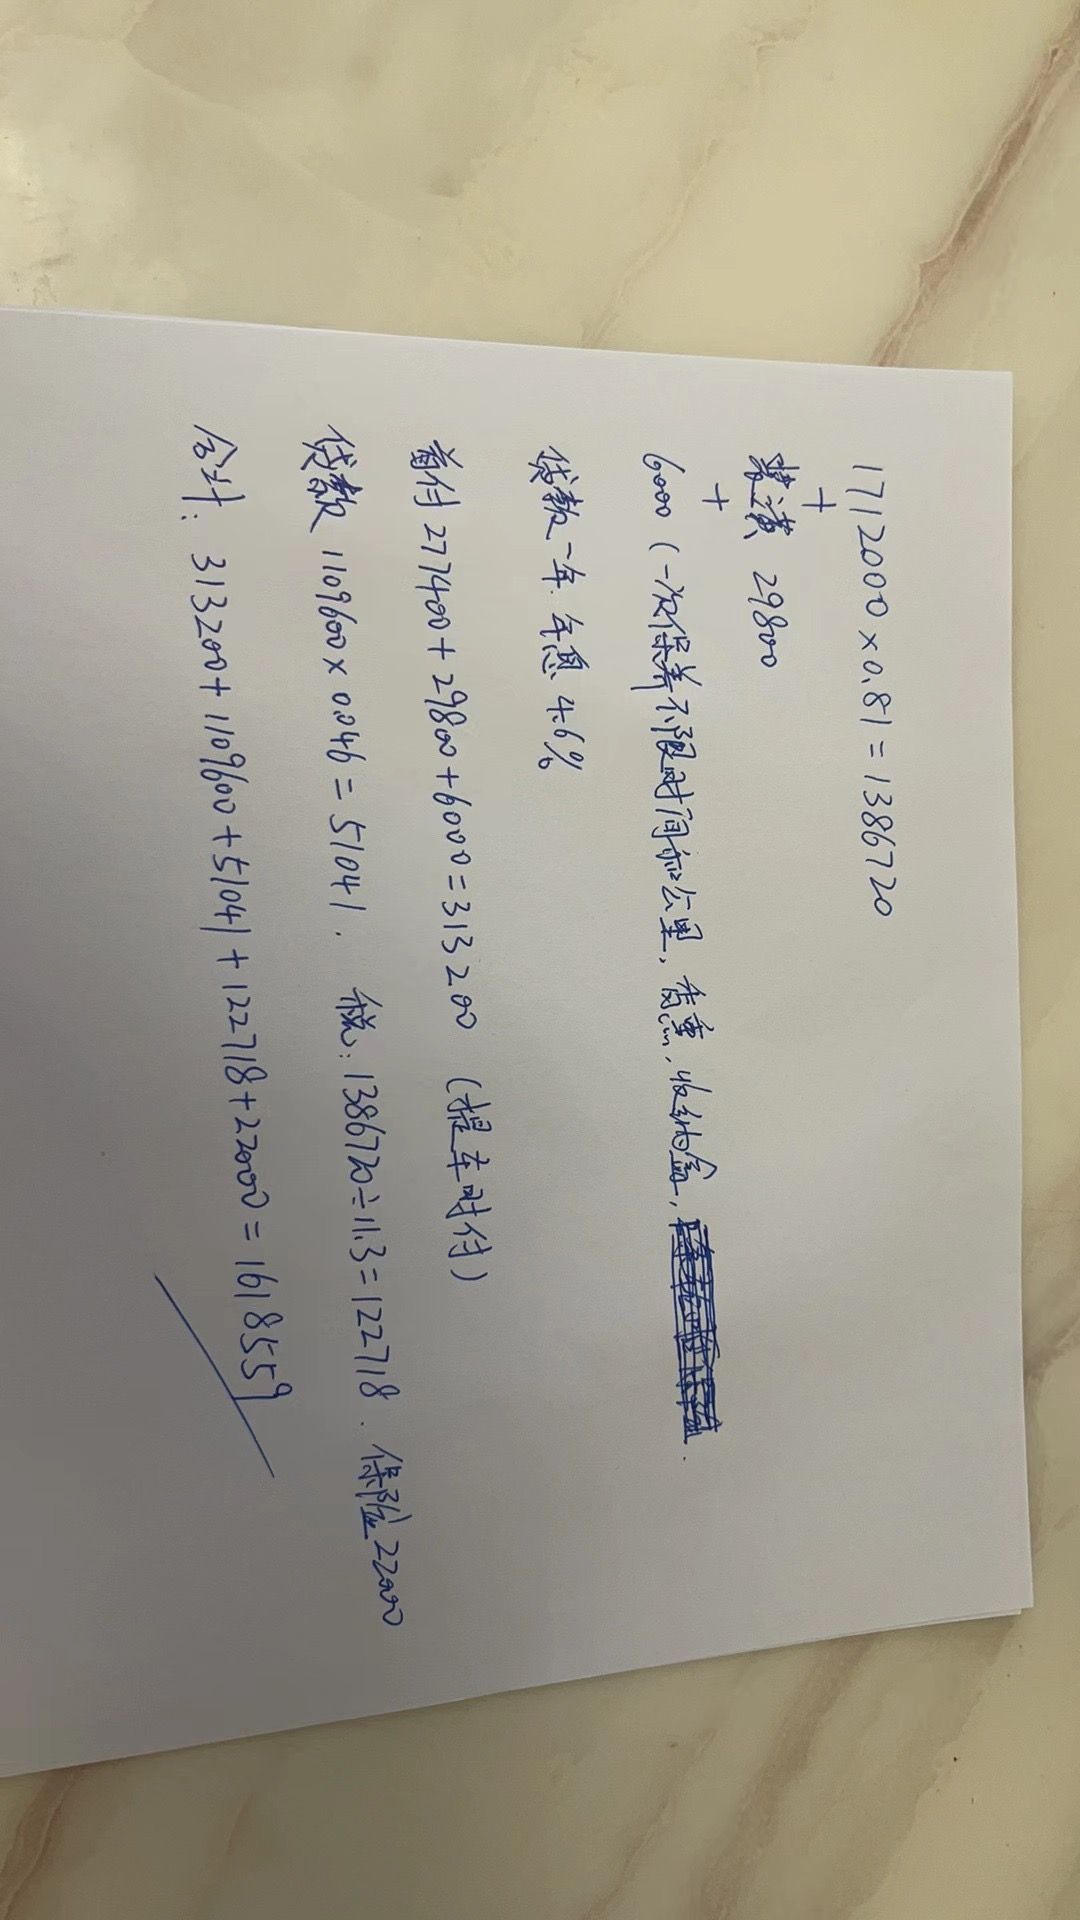 1712000 × 0.81 = 1386720
+
装潢 29800
+
6000 (一次保养不限时间和公里, 香熏, 收纳盒,
贷款一年. 年息 4.6%
首付 277400 + 29800 + 6000 = 313200 (提车时付)
贷款 1109600 × 0.046 = 51041. 税: 1386720 ÷ 11.3 = 122718. 保险 22000
合计: 313200 + 1109600 + 51041 + 122718 + 22000 = 1618559